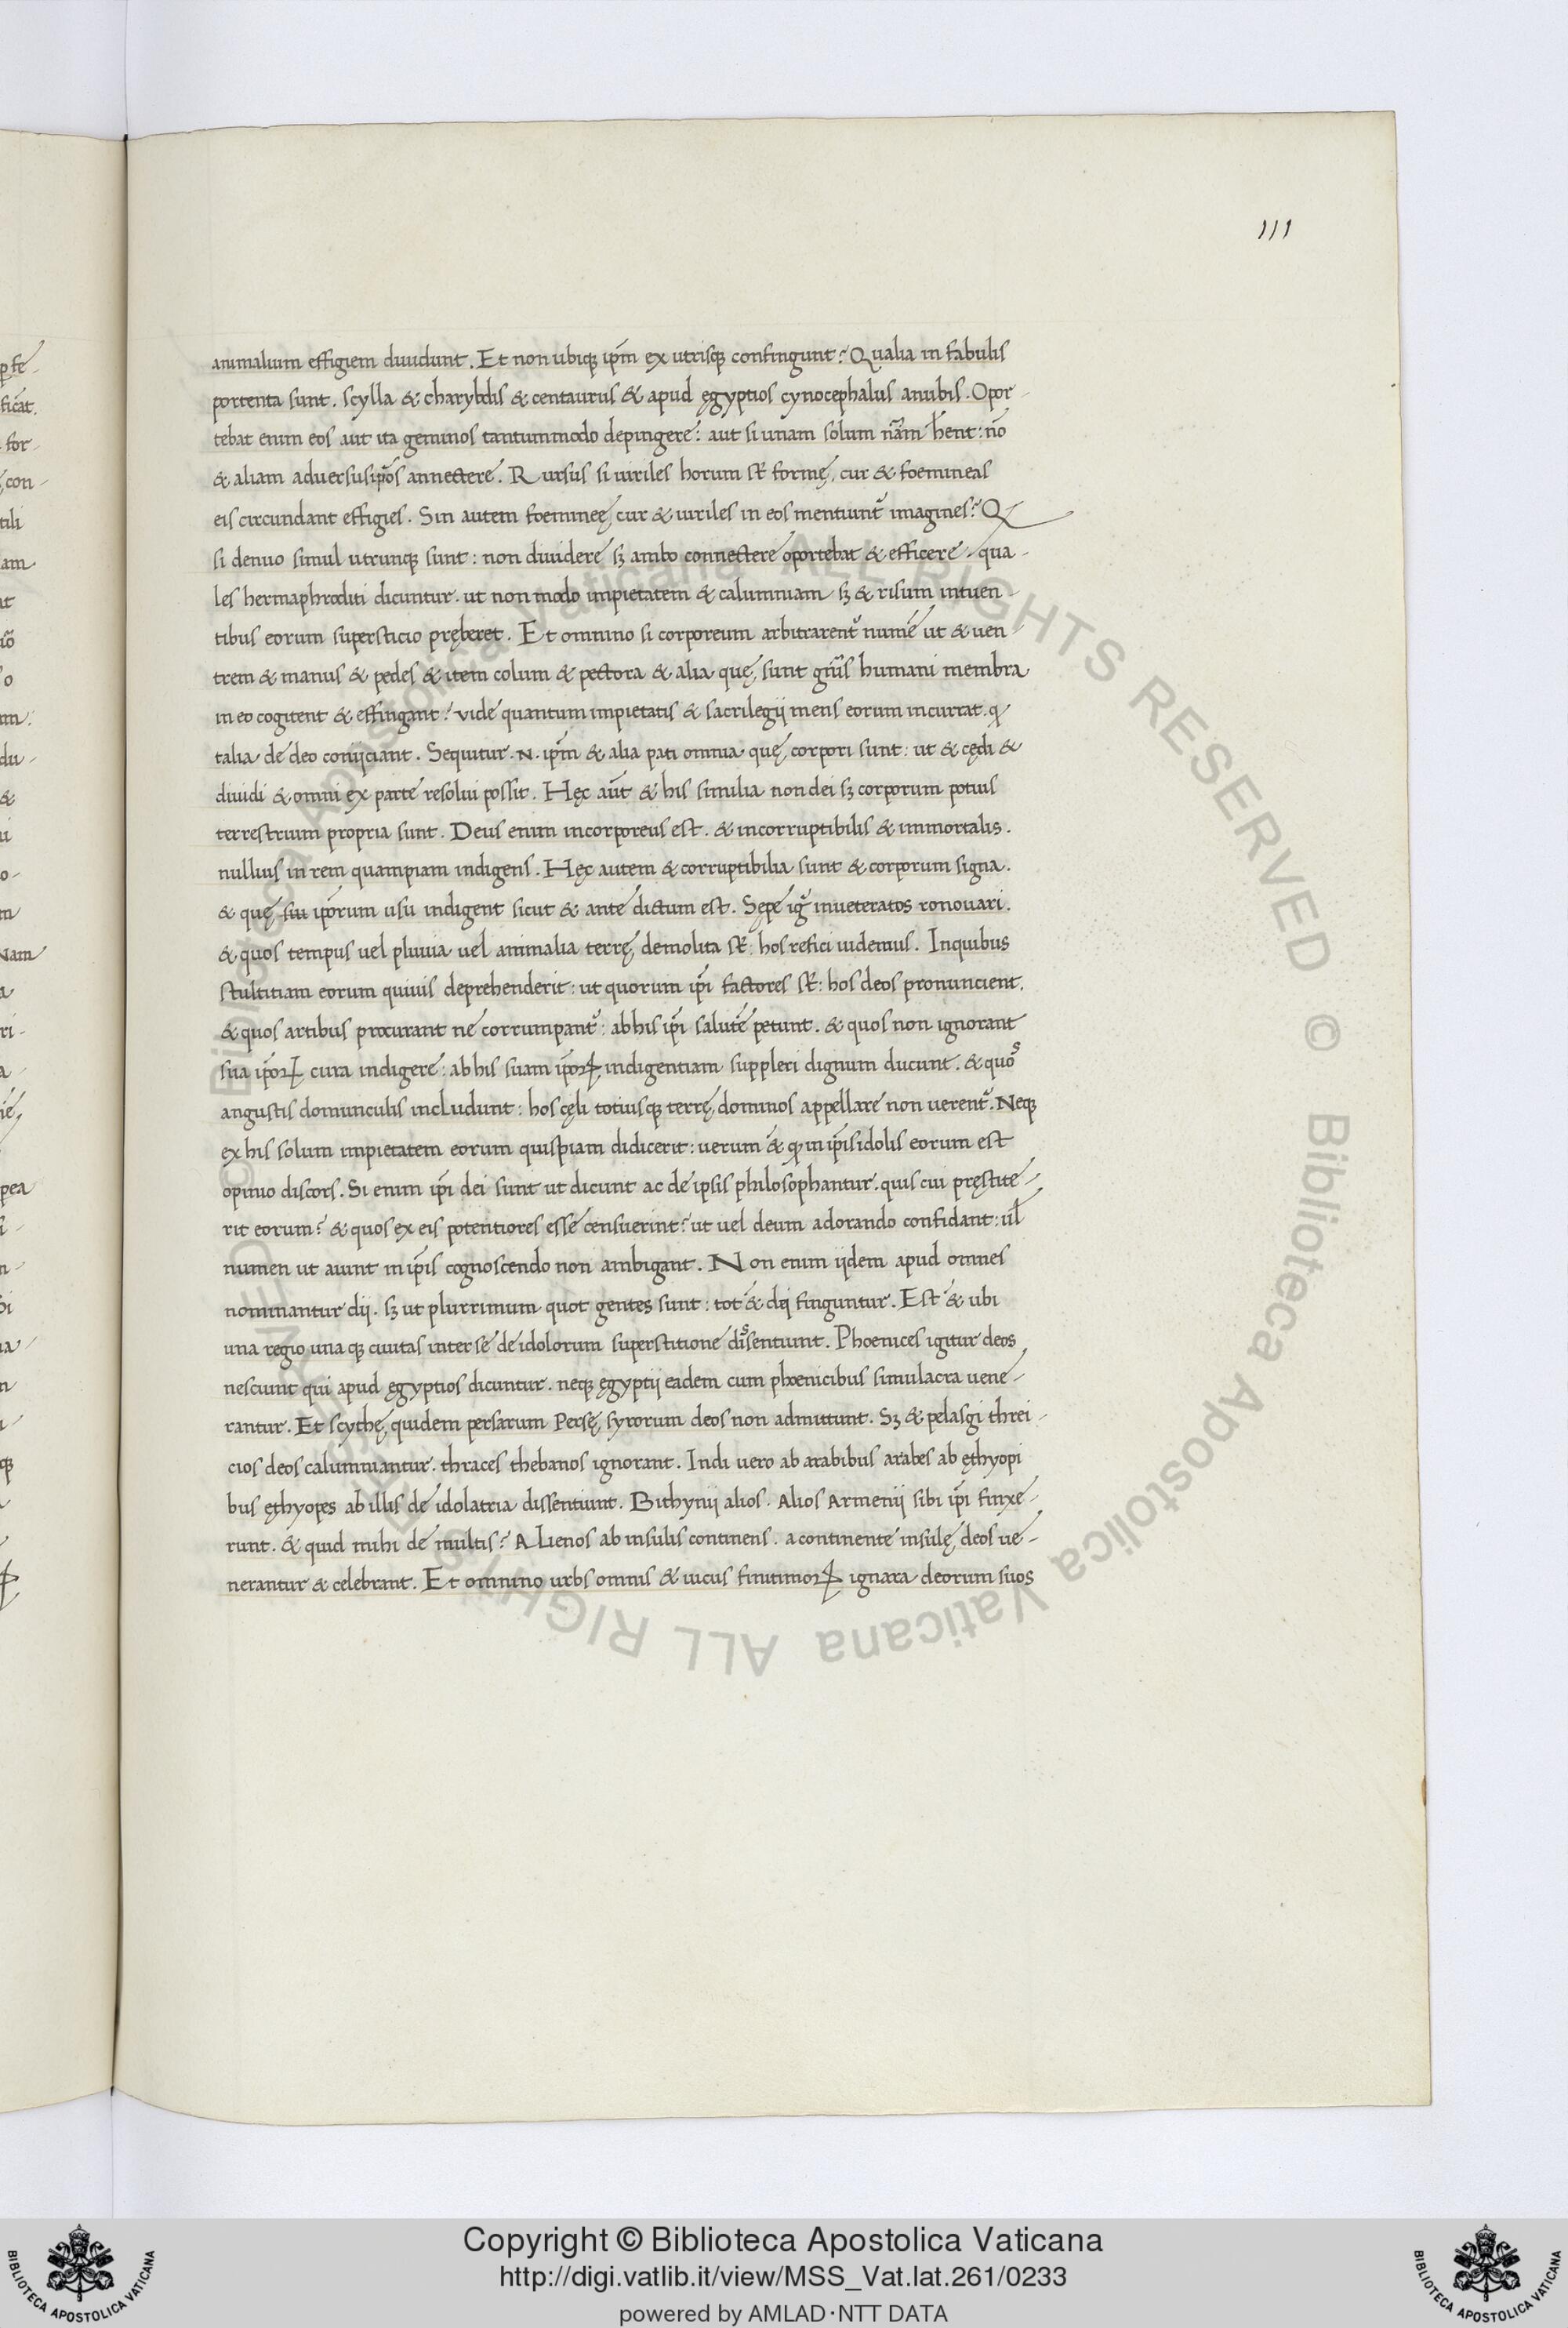 111
animalium effigiem diuidunt. Et non ubiqꝫ ip̄m ex utrisqꝫ confingunt? Qualia in fabulis
portenta sunt. scylla & charybdis & centaurus & apud ęgyptios cynocephalus anubis. Opor-
tebat enim eos aut ita geminos tantummodo depingere: aut si unam solum nr̄am hent: nō
& aliam aduersus ip̄os annectere. Rursus si uiriles horum st̄ formę, cur & foemineas
eis circundant effigies. Sin autem foemineę, cur & uiriles in eos mentiunt᷑ imagines? Q
si denuo simul utrunqꝫ sunt: non diuidere sꝫ ambo connectere oportebat & efficere. qua-
les hermaphroditi dicuntur. ut non modo impietatem & calumniam sꝫ & risum intuen-
tibus eorum supersticio pręberet. Et omnino si corporeum arbitrarent᷑ numē ut & uen-
trem & manus & pedes & item colum & pectora & alia quę sunt gn̄is humani membra
in eo cogitent & effingant? vide quantum impietatis & sacrilegij mens eorum incurrat. ꝙ
talia de deo conijciant. Sequitur .N. ip̄m & alia pati omnia quę corpori sunt: ut & cędi &
diuidi & omni ex parte resolui possit. Hęc aūt & his similia non dei sꝫ corporum potius
terrestrium propria sunt. Deus enim incorporeus est. & incorruptibilis & immortalis.
nullius in rem quampiam indigens. Hęc autem & corruptibilia sunt & corporum signa.
& quę ip̄orum usu indigent sicut & ante dictum est. Sępe ig᷑ inueteratos ronouari.
& quos tempus uel pluuia uel animalia terrę demolita st̄: hos refici uidemus. Inquibus
stultitiam eorum quiuis deprehenderit: ut quorum ip̄i factores st̄: hos deos pronuncient.
& quos artibus procurant ne corrumpant᷑: ab his ip̄i salutē petunt. & quos non ignorant
sua ip̄oꝝ cura indigere: ab his suam ip̄oꝝ indigentiam suppleri dignum ducunt. & quos
angustis domunculis includunt: hos cęli totiusqꝫ terrę dominos appellare non uerent᷑. Neqꝫ
ex his solum impietatem eorum quispiam didicerit: uerum & ꝙ in ip̄is idolis eorum est
opinio discors. Si enim ip̄i dei sunt ut dicunt ac de ipsis philosophantur. quis cui pręstite-
rit eorum? & quos ex eis potentiores esse censuerint? ut uel deum adorando confidant: ul̄
numen ut aiunt in ip̄is cognoscendo non ambigant. Non enim ijdem apud omnes
nominantur dij. sꝫ ut plurrimum quot gentes sunt: tot & dei finguntur. Est & ubi
una regio una qꝫ ciuitas inter se de idolorum superstitione dissentiunt. Phoenices igitur deos
nesciunt qui apud ęgyptios dicuntur. neqꝫ ęgyptij eadem cum phoenicibus simulacra uene-
rantur. Et scythę quidem persarum Persę syrorum deos non admittunt. Sꝫ & pelasgi threi-
cios deos calumniantur. thraces thebanos ignorant. Indi uero ab arabibus arabes ab ęthyopi
bus ęthyopes ab illis de idolatria dissentiunt. Bithynij alios. Alios Armenij sibi ip̄i finxe-
runt. & quid mihi de multis? Alienos ab insulis continens. a continente insulę deos ue-
nerantur & celebrant. Et omnino urbs omnis & uicus finitimoꝝ ignara deorum suos
Copyright © Biblioteca Apostolica Vaticana
http://digi.vatlib.it/view/MSS_Vat.lat.261/0233
powered by AMLAD·NTT DATA